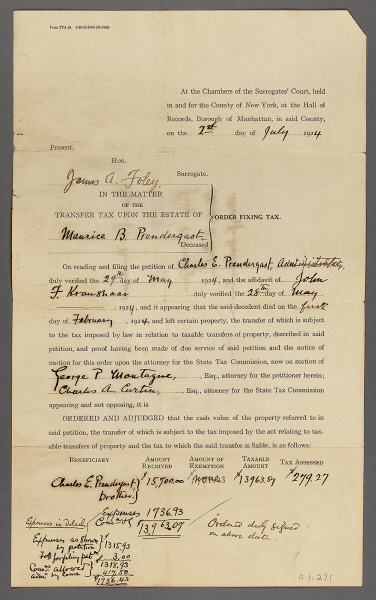 At the Chambers of the Surrogates' Court, held
in and for the County of New York, at the Hall of
Records, Borough of Manhattan, in said County,
on the 2nd day of July 1924
Present,
Hon.
James A. Foley, Surrogate.
IN THE MATTER
OF THE
TRANSFER TAX UPON THE ESTATE OF
Maurice B. Prendergast,
Deceased
ORDER FIXING TAX.
On reading and filing the petition of Charles E. Prendergast,
duly verified the 29th day of May 1924, and the affidavit of John
F. Kraushaar duly verified the 28th day of May
, 1924, and it appearing that the said decedent died on the first
day of February, 1924, and left certain property, the transfer of which is subject
to the tax imposed by the law in relation to taxable transfers of property, described in said
petition, and proof having been made of due service of said petition and the notice of
motion for this order upon the attorney for the State Tax Commission, now on motion of
George P. Montague, Esq., attorney for the petitioner herein;
Charles A. Curtin, Esq., attorney for the State Tax Commission
appearing and not opposing, it is
ORDERED AND ADJUDGED that the cash value of the property referred to in
said petition, the transfer of which is subject to the tax imposed by the act relating to tax-
able transfers of property and the tax to which the said transfer is liable, is as follows:
BENEFICIARY AMOUNT RECEIVED AMOUNT OF EXEMPTION TAXABLE AMOUNT TAX ASSESSED
Charles E. Prendergast $15,700.00 $13963.07 $279.27
(brother)
Expenses 1736.93
13,963.07
Expenses in detail
Expenses as shown
by petition $1315.93
Fee for filing pet. 3.00
$1318.93
Com. allowed
admr by law 417.50
$1736.43
Ordered duly
on above date.